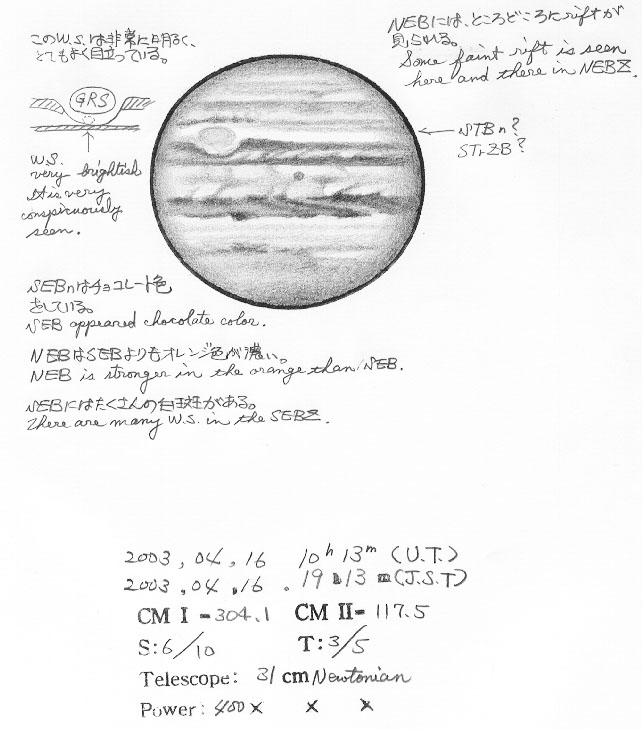 このW.S.は非常に明るく、
とてもよく目立っている。
GRS
W.S.
very brightish
It is very
conspicuously
seen.
NEBには、ところどころにriftが
見られる。
Some faint rift is seen
here and there in NEBZ.
STBn?
STrZB?
SEBnはチョコレート色
をしている。
SEB appeared chocolate color.
NEBはSEBよりもオレンジ色が濃い。
NEB is stronger in the orange than SEB.
SEBにはたくさんの白斑がある。
There are many W.S. in the SEBZ.
2003, 04, 16 10h 13m (U.T.)
2003, 04, 16. 19h 13m (J.S.T)
CM I = 304.1 CM II= 117.5
S: 6/10 T: 3/5
Telescope: 31 cm Newtonian
Power: 400× × ×